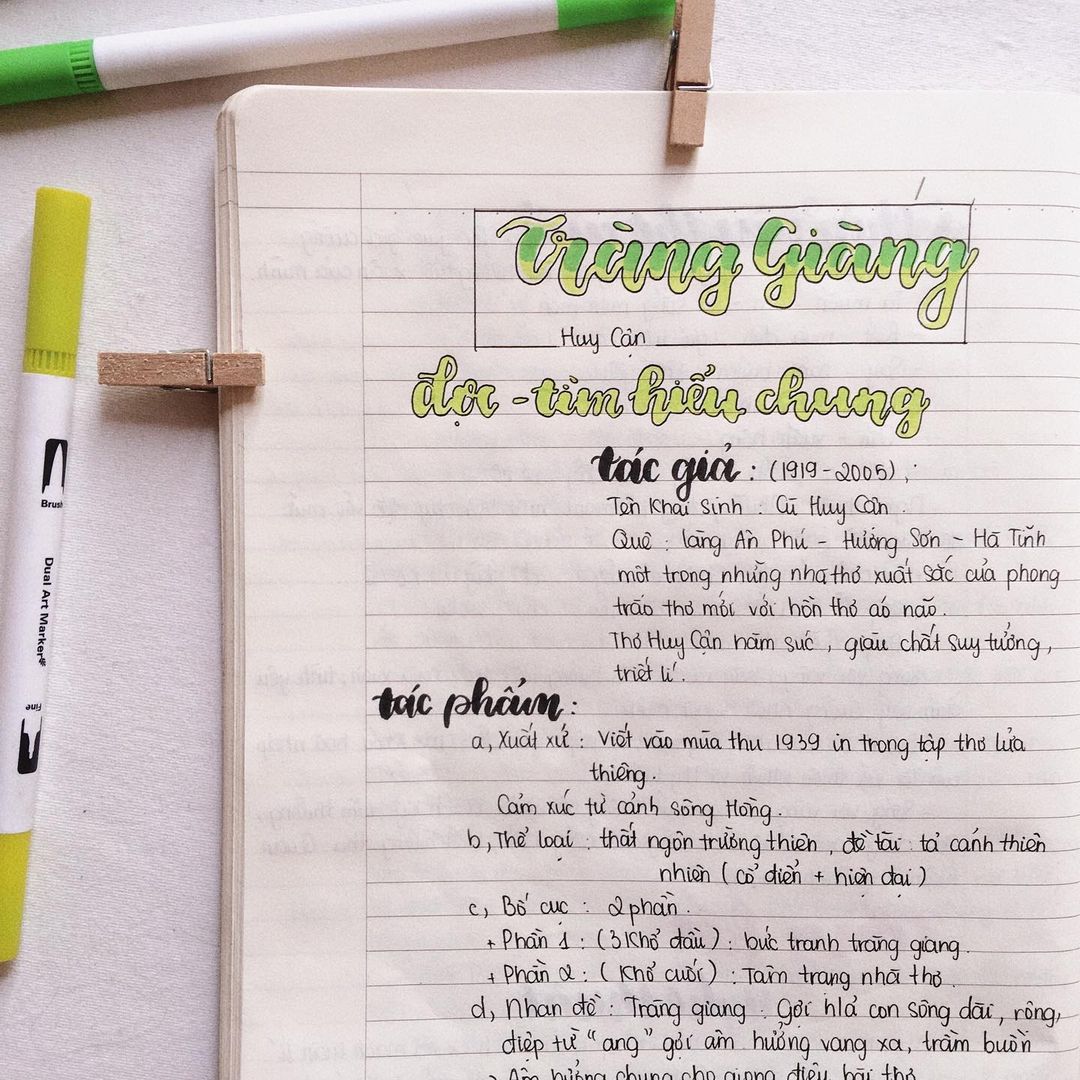 Tràng Giàng
Huy Cận
đọc - tìm hiểu chung
tác giả : (1919 - 2005) ;
Tên Khai Sinh : Cù Huy Cận .
Quê : làng Ân Phú - Hương Sơn - Hà Tĩnh
một trong những nhà thơ xuất sắc của phong
trào thơ mới với hồn thơ ảo não .
Thơ Huy Cận hàm súc , giàu chất suy tưởng ,
triết lí .
tác phẩm :
a, Xuất xứ : Viết vào mùa thu 1939 in trong tập thơ lửa
thiêng .
Cảm xúc từ cảnh sông Hồng .
b, Thể loại : thất ngôn trường thiên , đề tài : tả cảnh thiên
nhiên ( cổ điển + hiện đại )
c, Bố cục : 2 phần .
+ Phần 1 : ( 3 Khổ đầu ) : bức tranh tràng giang .
+ Phần 2 : ( Khổ cuối ) : Tâm trạng nhà thơ .
d, Nhan đề : Tràng giang : Gợi hả con sông dài , rộng ,
điệp từ " ang " gợi âm hưởng vang xa , trầm buồn
Âm hưởng chung cho giọng điệu bài thơ
Brush
Dual Art Marker
Fine